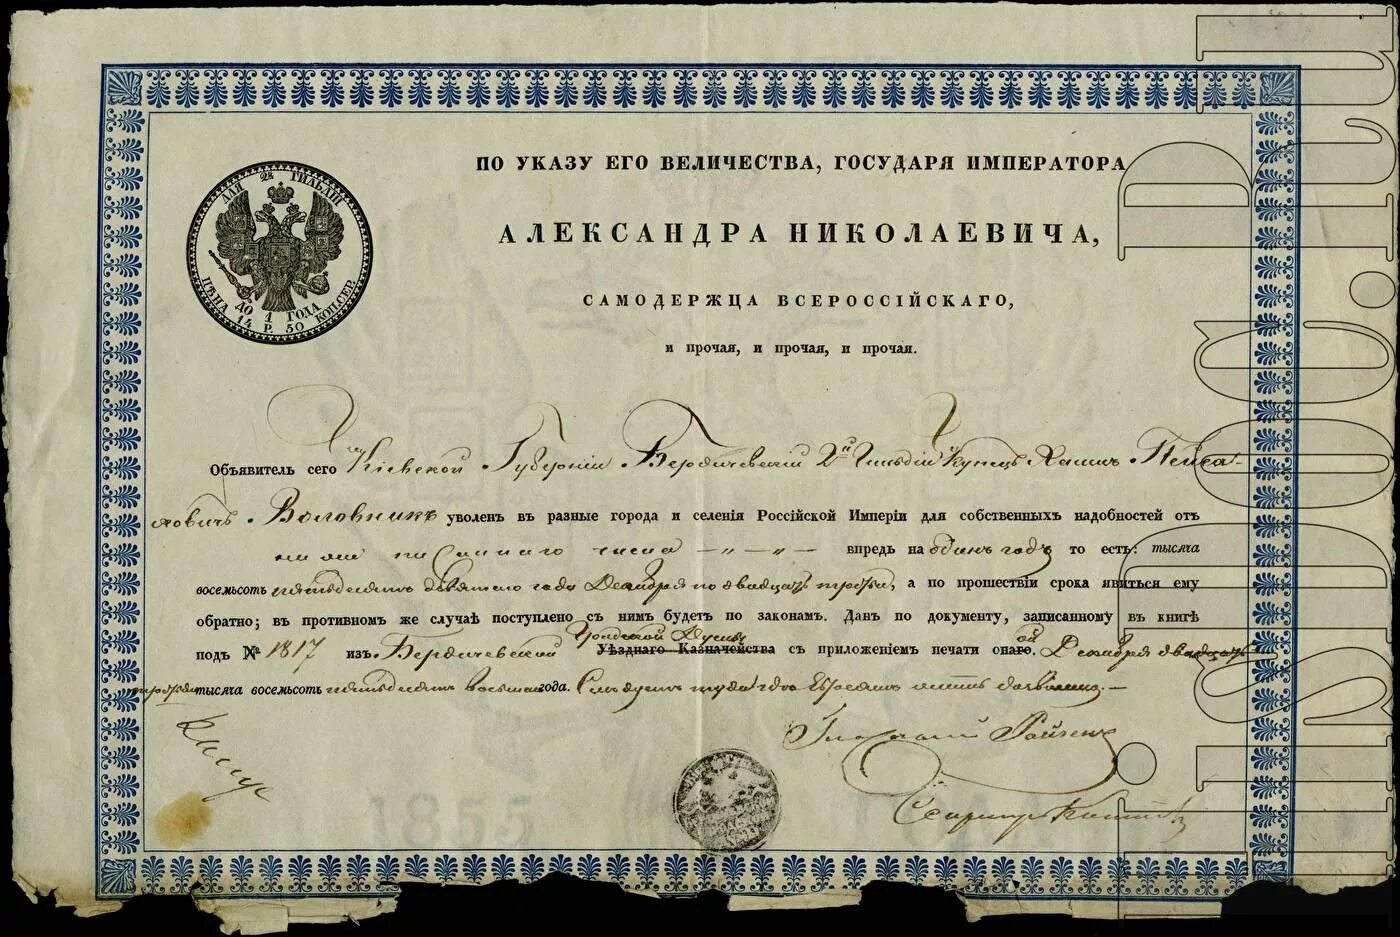 ДЛЯ 2й ГИЛЬДІИ
ЦѢНА ДО 1 ГОДА
14 Р. 50 КОП.СЕР.
ПО УКАЗУ ЕГО ВЕЛИЧЕСТВА, ГОСУДАРЯ ИМПЕРАТОРА
АЛЕКСАНДРА НИКОЛАЕВИЧА,
САМОДЕРЖЦА ВСЕРОССІЙСКАГО,
и прочая, и прочая, и прочая.
Объявитель сего Кіевской Губерніи Бердичевскій 2й Гильдіи Купецъ Хаимъ Пейса-
ховичъ Воловникъ уволенъ въ разные города и селенія Россійской Имперіи для собственныхъ надобностей отъ
ниже писаннаго числа — „ — „ — впредь на одинъ годъ то есть: тысяча
восемьсотъ пятьдесятъ девятаго года Декабря по двадцать третье, а по прошествіи срока явиться ему
обратно; въ противномъ же случаѣ поступлено съ нимъ будетъ по законамъ. Данъ по документу, записанному въ книгѣ
Городской Думы
подъ № 1817 изъ Бердичевской Уѣзднаго Казначейства съ приложеніемъ печати онаго. ой Декабря двадцать
третьяго тысяча восемьсотъ пятьдесятъ восьмаго года.
Гласный
1855